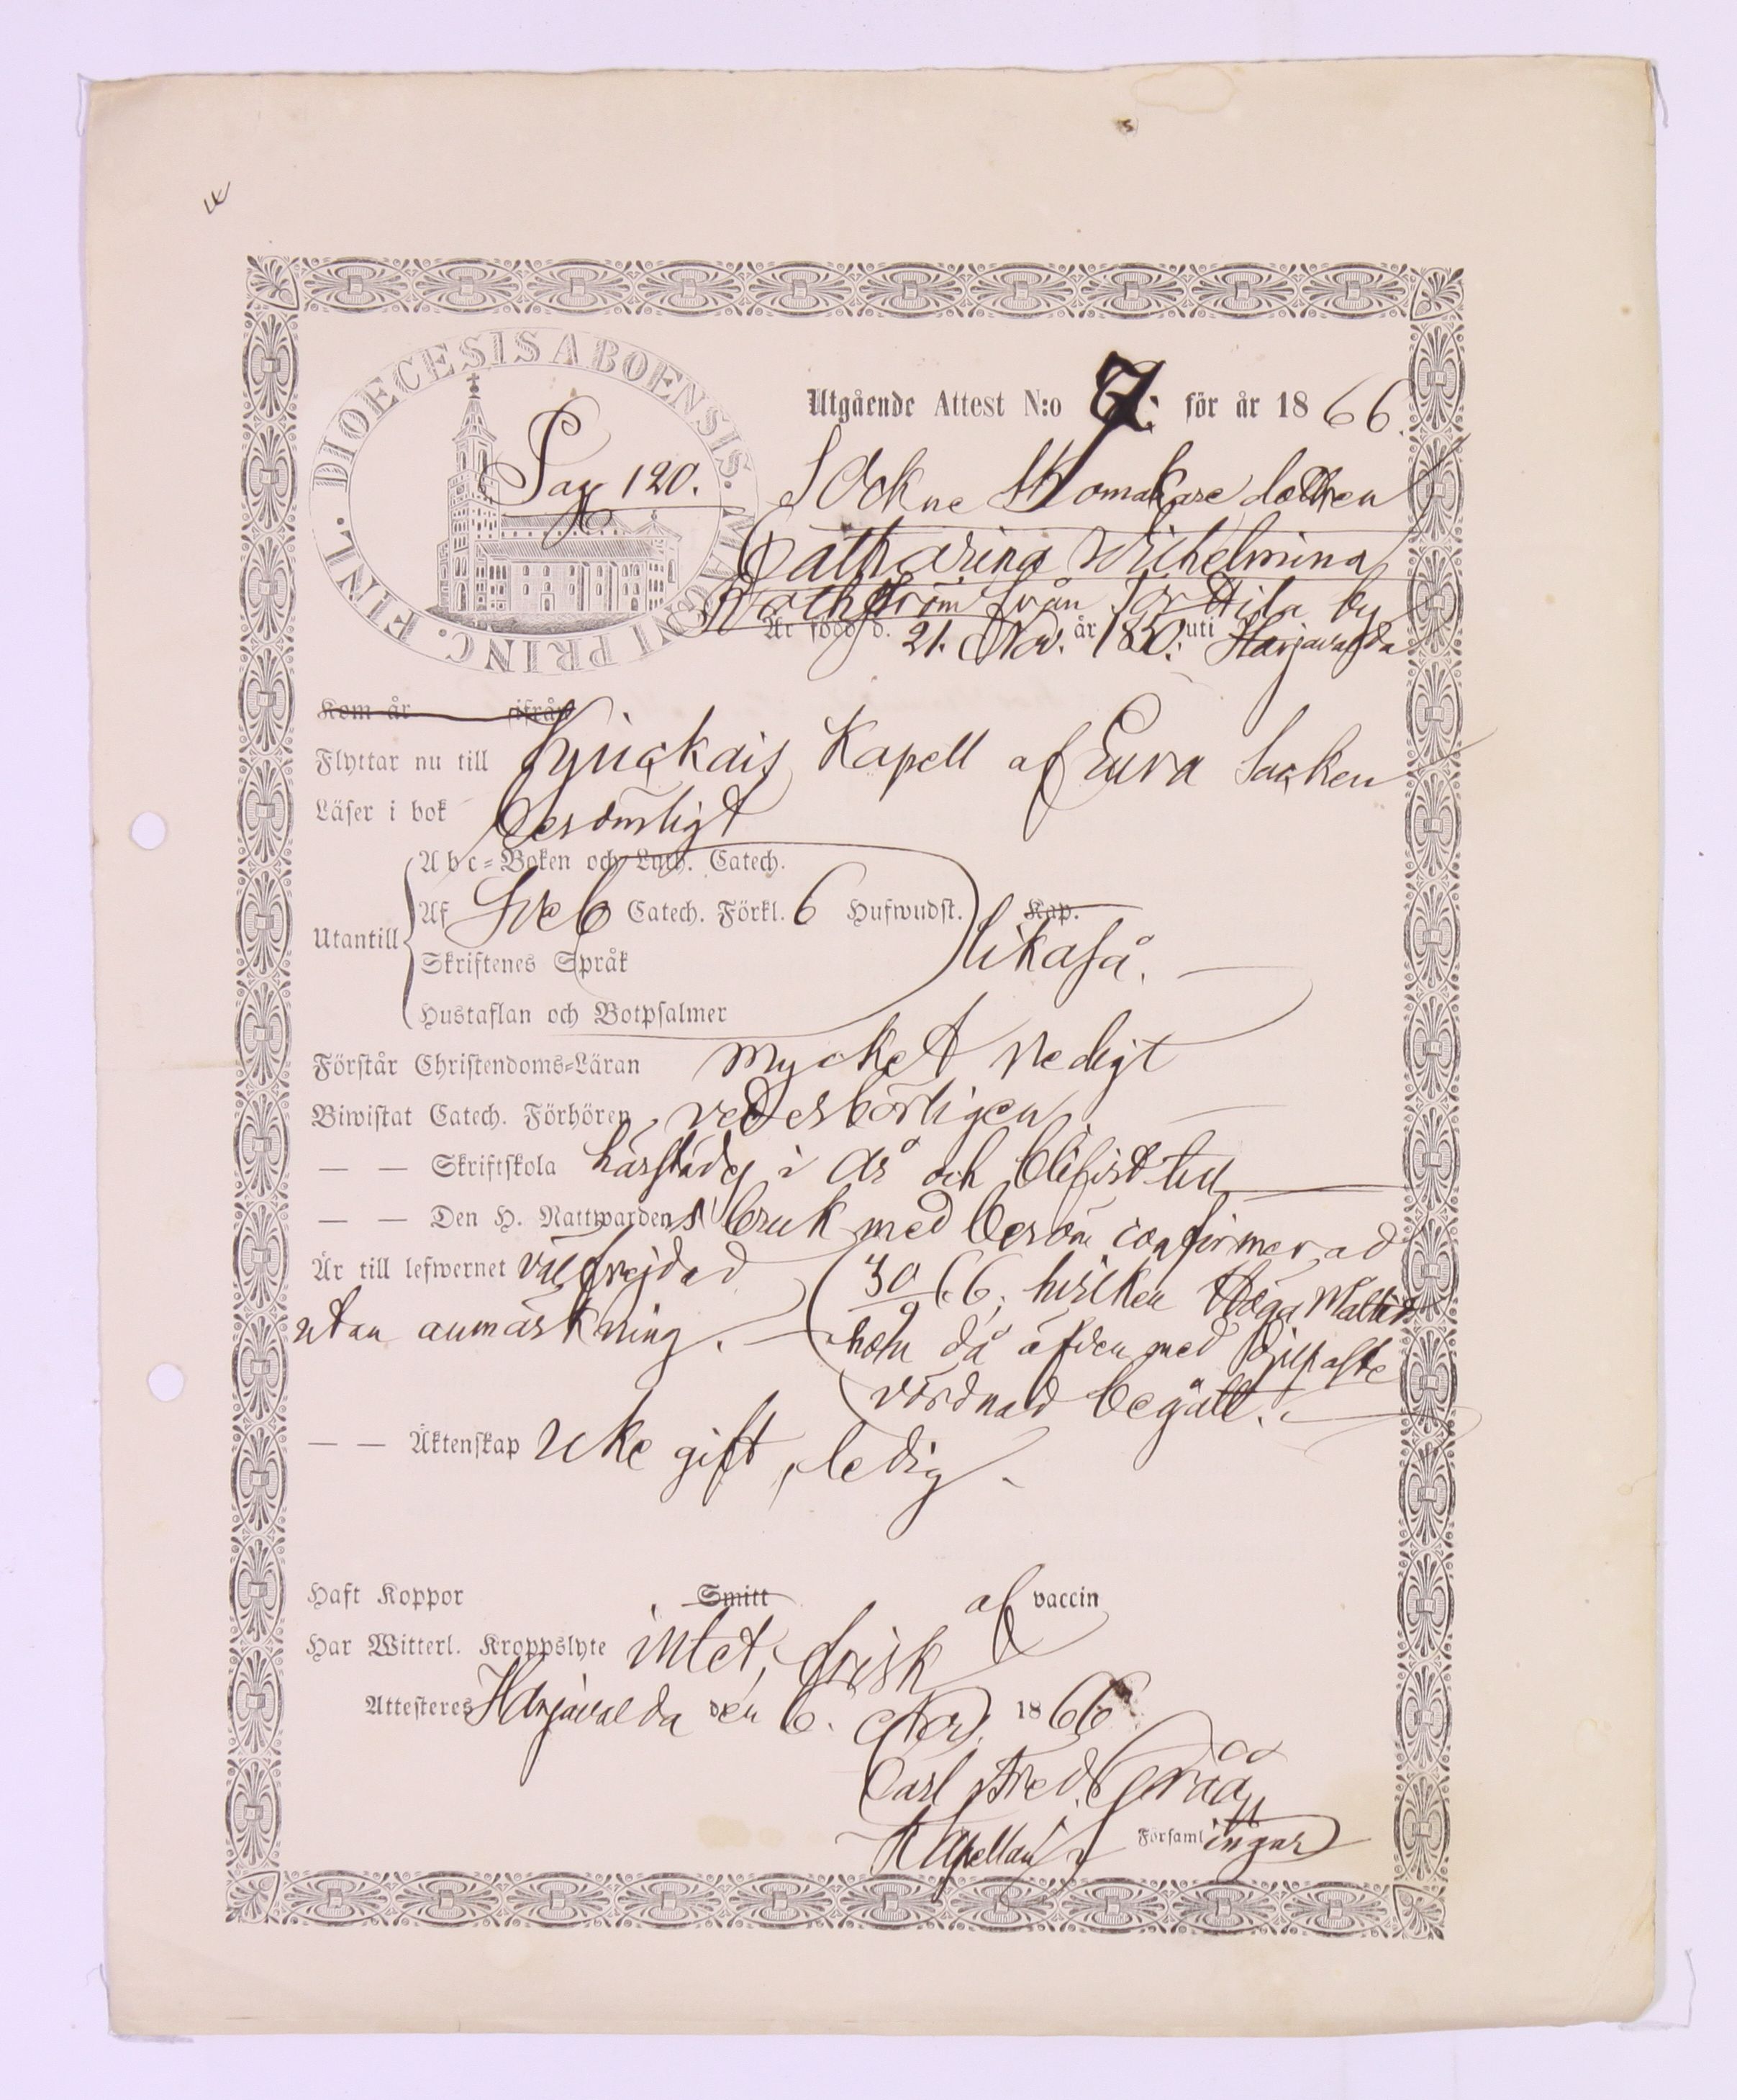 DIOECESIS ABOENSIS. MAGNI PRINC. FINL.
Pag 120.
Utgående Attest N:o 7. för år 1866.
Sockne Skomakare dottren
Catharina Wilhelmina
från Torttila by
Är född d. 21. Nov. år 1850. uti Harjavalda
Kom år ifrån
Flyttar nu till Kjuckais Kapell af Eura Socken
Läser i bok berömligt
Utantill
Abc-Boken och Luth. Catech.
Af Sveb Catech. Förkl. 6 Hufwudst. Kap.
likaså.
Skriftenes Språk
Hustaflan och Botpsalmer
Förstår Christendoms-Läran mycket redigt
Biwistat Catech. Förhören vederbörligen
— — Skriftskola härstädes i år och blifvit till
— — Den H. Nattwardens bruk med beröm confirmerad
Är till lefwernet välfrejdad
utan anmärkning.
30/9 66; hvilken Höga Måltid
hon då äfven med djupaste
vördnad begått.
— — Äktenskap Icke gift, ledig.
Haft Koppor Smitt af vaccin
Har Witterl. Kroppslyte intet, frisk
Attesteres Harjavalda den 6. Nov. 1866
Carl Fred.
Kapellan i Församlingar